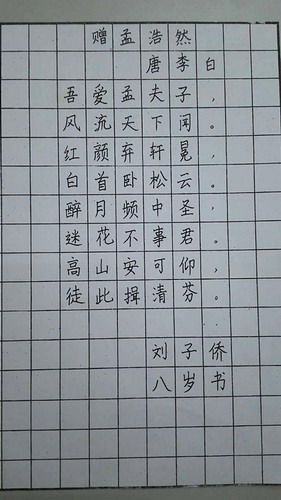 赠孟浩然
唐李白
吾爱孟夫子，
风流天下闻。
红颜弃轩冕，
白首卧松云。
醉月频中圣，
迷花不事君。
高山安可仰，
徒此揖清芬。
刘子侨
八岁书